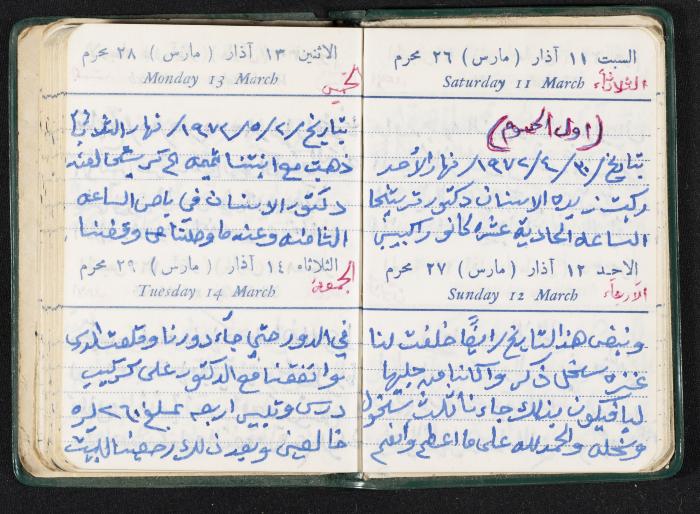 السبت ١١ آذار ( مارس ) ٢٦ محرم
Saturday 11 March
الثلاثاء
( اول الحسوم )
بتاريخ /٣٠/ ٤/ ١٩٧٢/ نهار الأحد
زيده الاسنان دكتور
الساعه الحادية عشره كانو راكبين
الاحد ١٢ آذار ( مارس ) ٢٧ محرم
Sunday 12 March
الأربعاء
وبنفس هذا التاريخ ايضاً خلفت لنا
عنزه سخل ذكر واكاننا من حليبها
لبا فيكون بذلك جاءنا ثلاث سخول
وسخله والحمد لله على ما اعظم وانعم
الاثنين ١٣ آذار ( مارس ) ٢٨ محرم
Monday 13 March
الخميس
بتاريخ /٢/ ٥/ ١٩٧٢/ نهار الثلاثاء
ذهبت مع ابنتنا الى لعند
دكتور الاسنان في باص الساعه
الثامنه وعند ما وصلنا وقفنا
الثلاثاء ١٤ آذار ( مارس ) ٢٩ محرم
Tuesday 14 March
الجمعة
في الدور حتى جاء دورنا وقلعت
واتفقنا مع الدكتور على تركيب
درس وتلبيس اربعه بمبلغ ٢٦٠ ليره
خالصين وبعد ذلك رجعنا للبيت